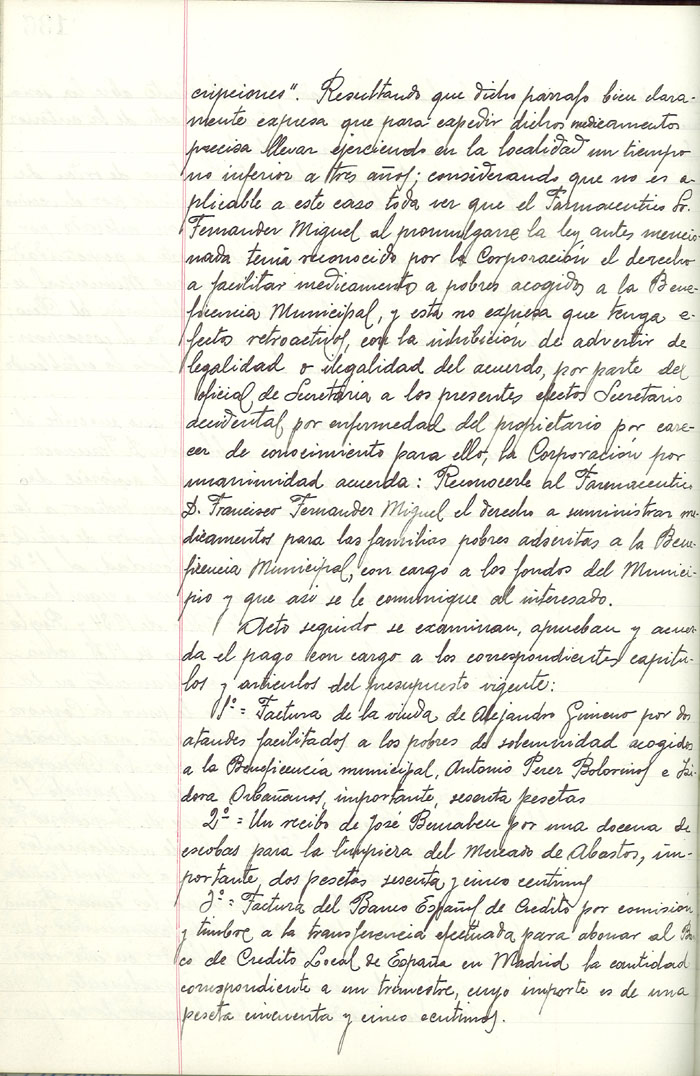 cripciones". Resultando que dicho párrafo bien clara-
mente expresa que para expedir dichos medicamentos
precisa llevar ejerciendo en la localidad un tiempo
no inferior a tres años; considerando que no es a-
plicable a este caso toda vez que el Farmaceutico Sr.
Fernandez Miguel al promulgarse la ley antes mencio-
nada tenia reconocido por la Corporación el derecho
a facilitar medicamentos a pobres acogidos a la Bene-
ficencia Municipal, y esta no expresa que tenga e-
fectos retroactivos, con la inhibición de advertir de
legalidad o ilegalidad del acuerdo, por parte del
oficial de Secretaria a los presentes efectos Secretario
accidental por enfermedad del propietario por care-
cer de conocimiento para ello, la Corporación por
unanimidad acuerda: Reconocerle al Farmaceutico
D. Francisco Fernandez Miguel el derecho a suministrar me-
dicamentos para las familias pobres adscritas a la Bene-
ficencia Municipal, con cargo a los fondos del Munici-
pio y que asi se le comunique al interesado.
Acto seguido se examinan, aprueban y acuer-
da el pago con cargo a los correspondientes capitu-
los y articulos del presupuesto vigente:
1º = Factura de la viuda de Alejandro Gimeno por dos
ataudes facilitados a los pobres de solemnidad acogidos
a la Beneficencia municipal, Antonio Perez Bolorinos e Isi-
dora Orbañanos, importante, sesenta pesetas
2º = Un recibo de José Bernabeu por una docena de
escobas para la limpieza del Mercado de Abastos, im-
portante dos pesetas sesenta y cinco centimos
3º = Factura del Banco Español de Credito por comisión
y timbre a la transferencia efectuada para abonar al Ban-
co de Credito Local de España en Madrid la cantidad
correspondiente a un trimestre, cuyo importe es de una
peseta cincuenta y cinco centimos.